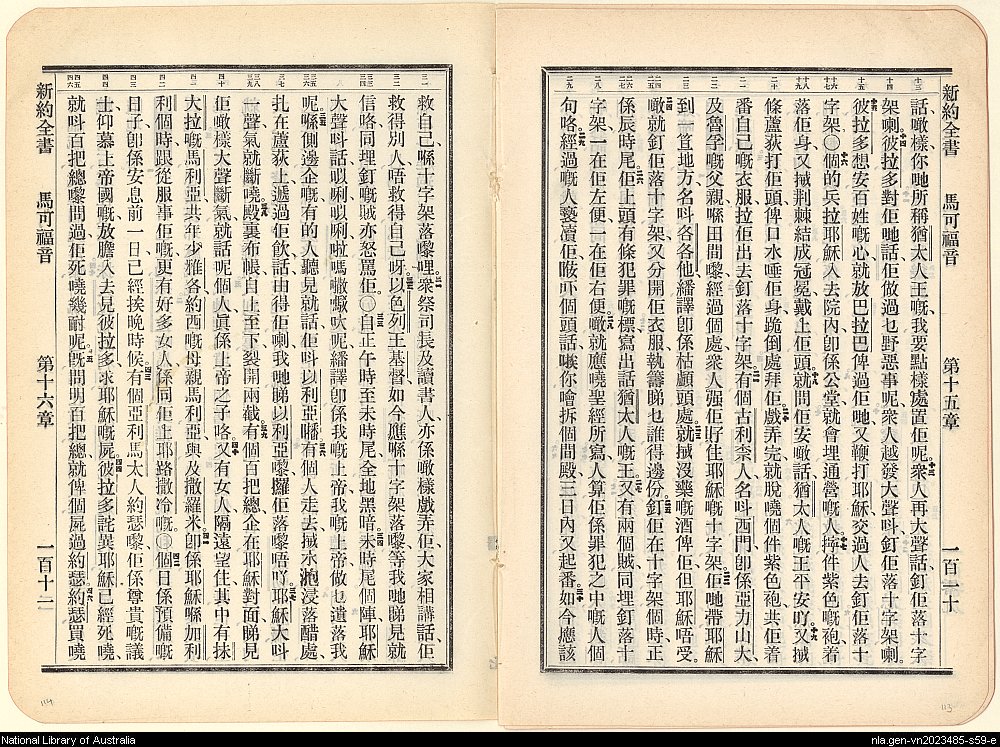 新約全書 馬可福音 第十五章 一百一十
話、噉樣你哋所稱猶太人王嘅、我要點樣處置佢呢。衆人再大聲話、釘佢落十字
架喇。彼拉多對佢哋話、佢做過乜野惡事呢、衆人越發大聲呌、釘佢落十字架喇。
彼拉多想安百姓嘅心、就放巴拉巴俾過佢哋、又鞭打耶穌、交過人去釘佢落十
字架。○個的兵拉耶穌入去院內、卽係公堂、就會埋通營嘅人。擰件紫色嘅袍着
落佢身、又搣荆棘結成冠冕、戴上佢頭。就問佢安、噉話、猶太人嘅王平安吖。又搣
條蘆荻打佢頭、俾口水唾佢身、跪倒處拜佢。戲弄完、就脫嘵個件紫色袍、共佢着
番自己嘅衣服、拉佢出去釘落十字架。有個古利柰人、名呌西門、卽係亞力山大
及魯孚嘅父親、喺田間嚟、經過個處、衆人强佢孖住耶穌嘅十字架。佢哋帶耶穌
到一笪地方、名呌各各他、繙譯卽係枯顱頭處。就搣沒藥嘅酒俾佢、但耶穌唔受。
噉就釘佢落十字架、又分開佢衣服、執籌睇乜誰得邊份。釘佢在十字架個時、正
係辰時尾。佢上頭有條犯罪嘅標、寫出話、猶太人嘅王。又有兩個賊同埋釘落十
字架、一在佢左便、一在佢右便。噉就應嘵聖經所寫、人算佢係罪犯之中嘅人個
句咯。經過嘅人褻瀆佢、𢫏吓個頭話、嗾、你噲拆個間殿、三日內又起番。如今應該
新約全書 馬可福音 第十六章 一百十一
救自己、喺十字架落嚟哩。衆祭司長及讀書人、亦係噉樣戲弄佢、大家相講話、佢
救得別人、唔救得自己呀。以色列王基督、如今應喺十字架落嚟、等我哋睇見就
信咯。同埋釘嘅賊亦怒罵佢。○自正午時至未時尾、全地黑暗。未時尾個陣、耶穌
大聲呌話、以唎以唎、啦嗎噉𠽌吠呢、繙譯卽係我嘅上帝、我嘅上帝、做乜遺落我
呢。喺側邊企嘅有的人聽見、就話、佢呌以利亞𠺝。有個人走去搣水𣺉浸落醋處、
扎在蘆荻上、遞過佢飮、話、由得佢喇、我哋睇以利亞嚟攞佢落嚟唔吖。耶穌大呌
一聲、氣就斷嘵。殿裏布帳、自上至下裂開兩截。有個百把總、企在耶穌對面、睇見
佢噉樣大聲斷氣、就話、呢個人眞係上帝之子咯。又有女人隔遠望住、其中有抹
大拉嘅馬利亞、共年少雅各約西嘅母親馬利亞、與及撒羅米。卽係耶穌喺加利
利個時、跟從服事佢嘅、更有好多女人、係同佢上耶路撒冷嘅。○個日係預備嘅
日子、卽係安息前一日、已經挨晚時候。有個亞利馬太人約瑟嚟、佢係尊貴嘅議
士、仰慕上帝國嘅、放膽入去見彼拉多、求耶穌嘅屍。彼拉多詫異耶穌已經死嘵、
就呌百把總嚟、問過佢死嘵幾耐呢。旣問明百把總、就俾個屍過約瑟。約瑟買嘵
National Library of Australia
nla.gen-vn2023485-s59-e